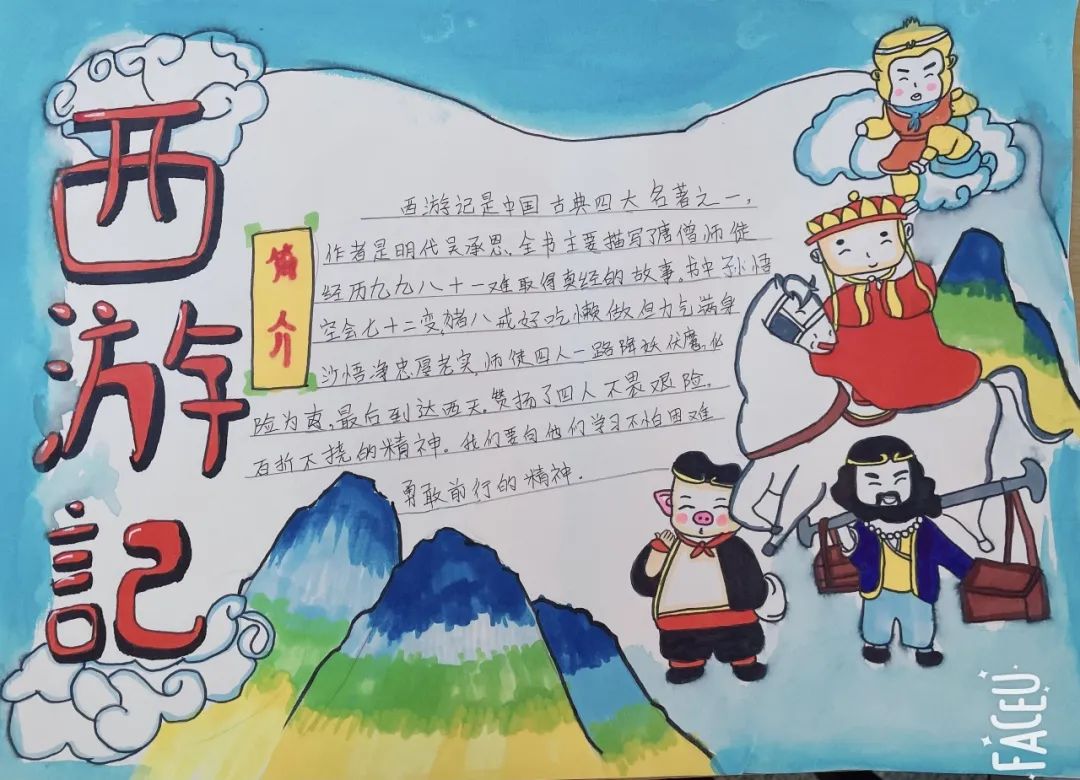 西游記
简介
西游记是中国古典四大名著之一,
作者是明代吴承恩、全书主要描写了唐僧师徒
经历九九八十一难取得真经的故事。书中孙悟
空会七十二变,猪八戒好吃懒做但力气满身
沙悟净忠厚老实,师徒四人一路降妖伏魔,化
险为夷,最后到达西天。赞扬了四人不畏艰险,
百折不挠的精神。我们要向他们学习不怕困难
勇敢前行的精神.
FACEU